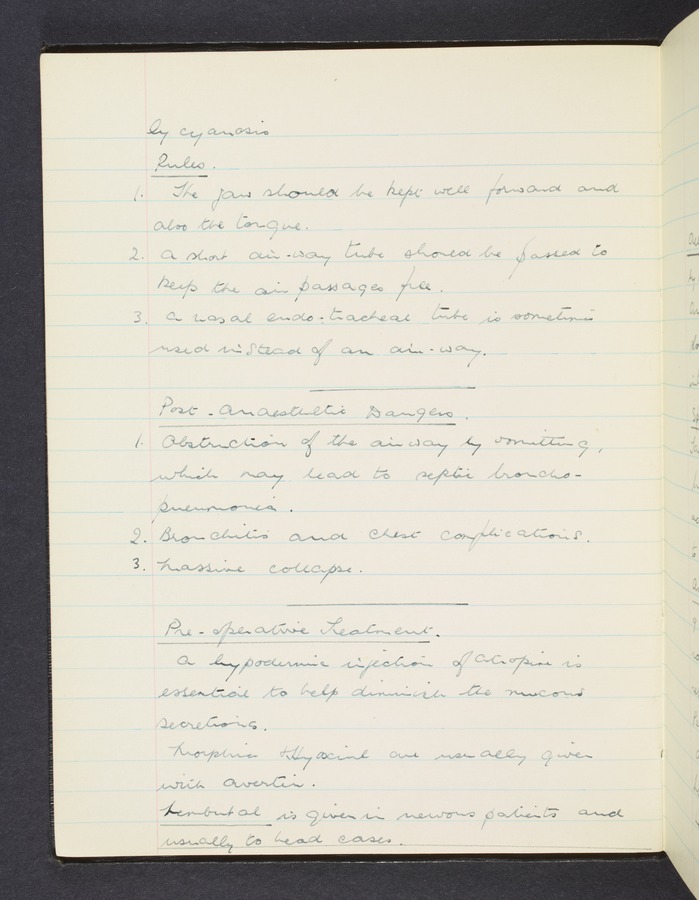 by cyanosis
Rules.
1. The jaw should be kept well forward and
also the tongue.
2. A short air-way tube should be passed to
keep the air passages free.
3. A nasal endo-tracheal tube is sometimes
used instead of an air-way.
Post-Anaesthetic Dangers.
1. Obstruction of the airway by vomitting,
which may lead to septic broncho-
pneumonia.
2. Bronchitis and chest complications.
3. Massive collapse.
Pre-operative Treatment.
A hypodermic injection of atropine is
essential to help diminish the mucous
secretions.
Morphia & Hyoscine are usually given
with avertin.
Nembutal is given in nervous patients and
usually to head cases.